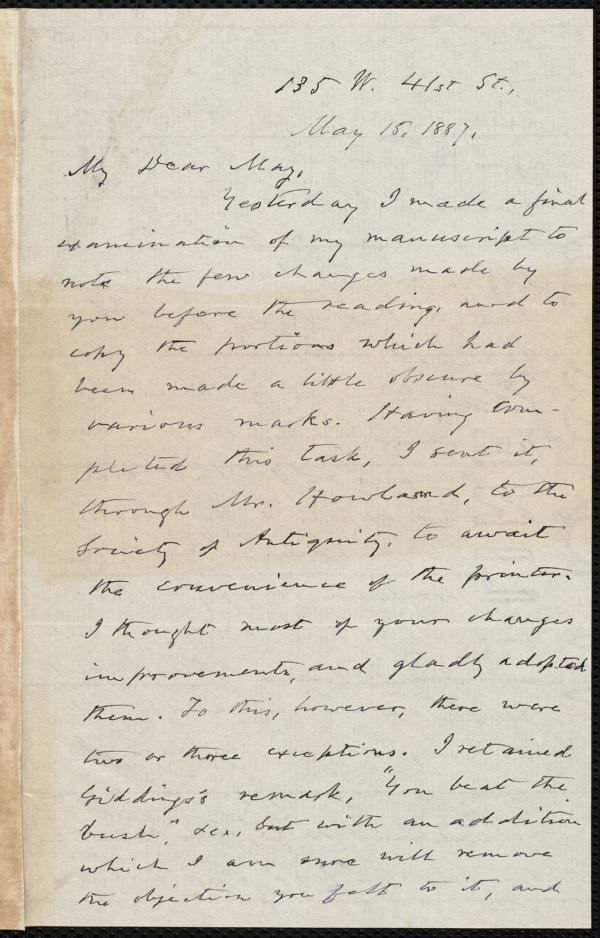 135 W. 41st St.,
May 15, 1887.
My Dear May,
Yesterday I made a final
examination of my manuscript to
note the few changes made by
you before the reading, and to
copy the portions which had
been made a little obscure by
various marks. Having com-
pleted this task, I sent it,
through Mr. Howland, to the
Society of Antiquity, to await
the convenience of the printer.
I thought most of your changes
improvements, and gladly adopted
them. To this, however, there were
two or three exceptions. I retained
Giddings's remark, "You beat the
bush," &c., but with an addition
which I am sure will remove
the objection you felt to it, and